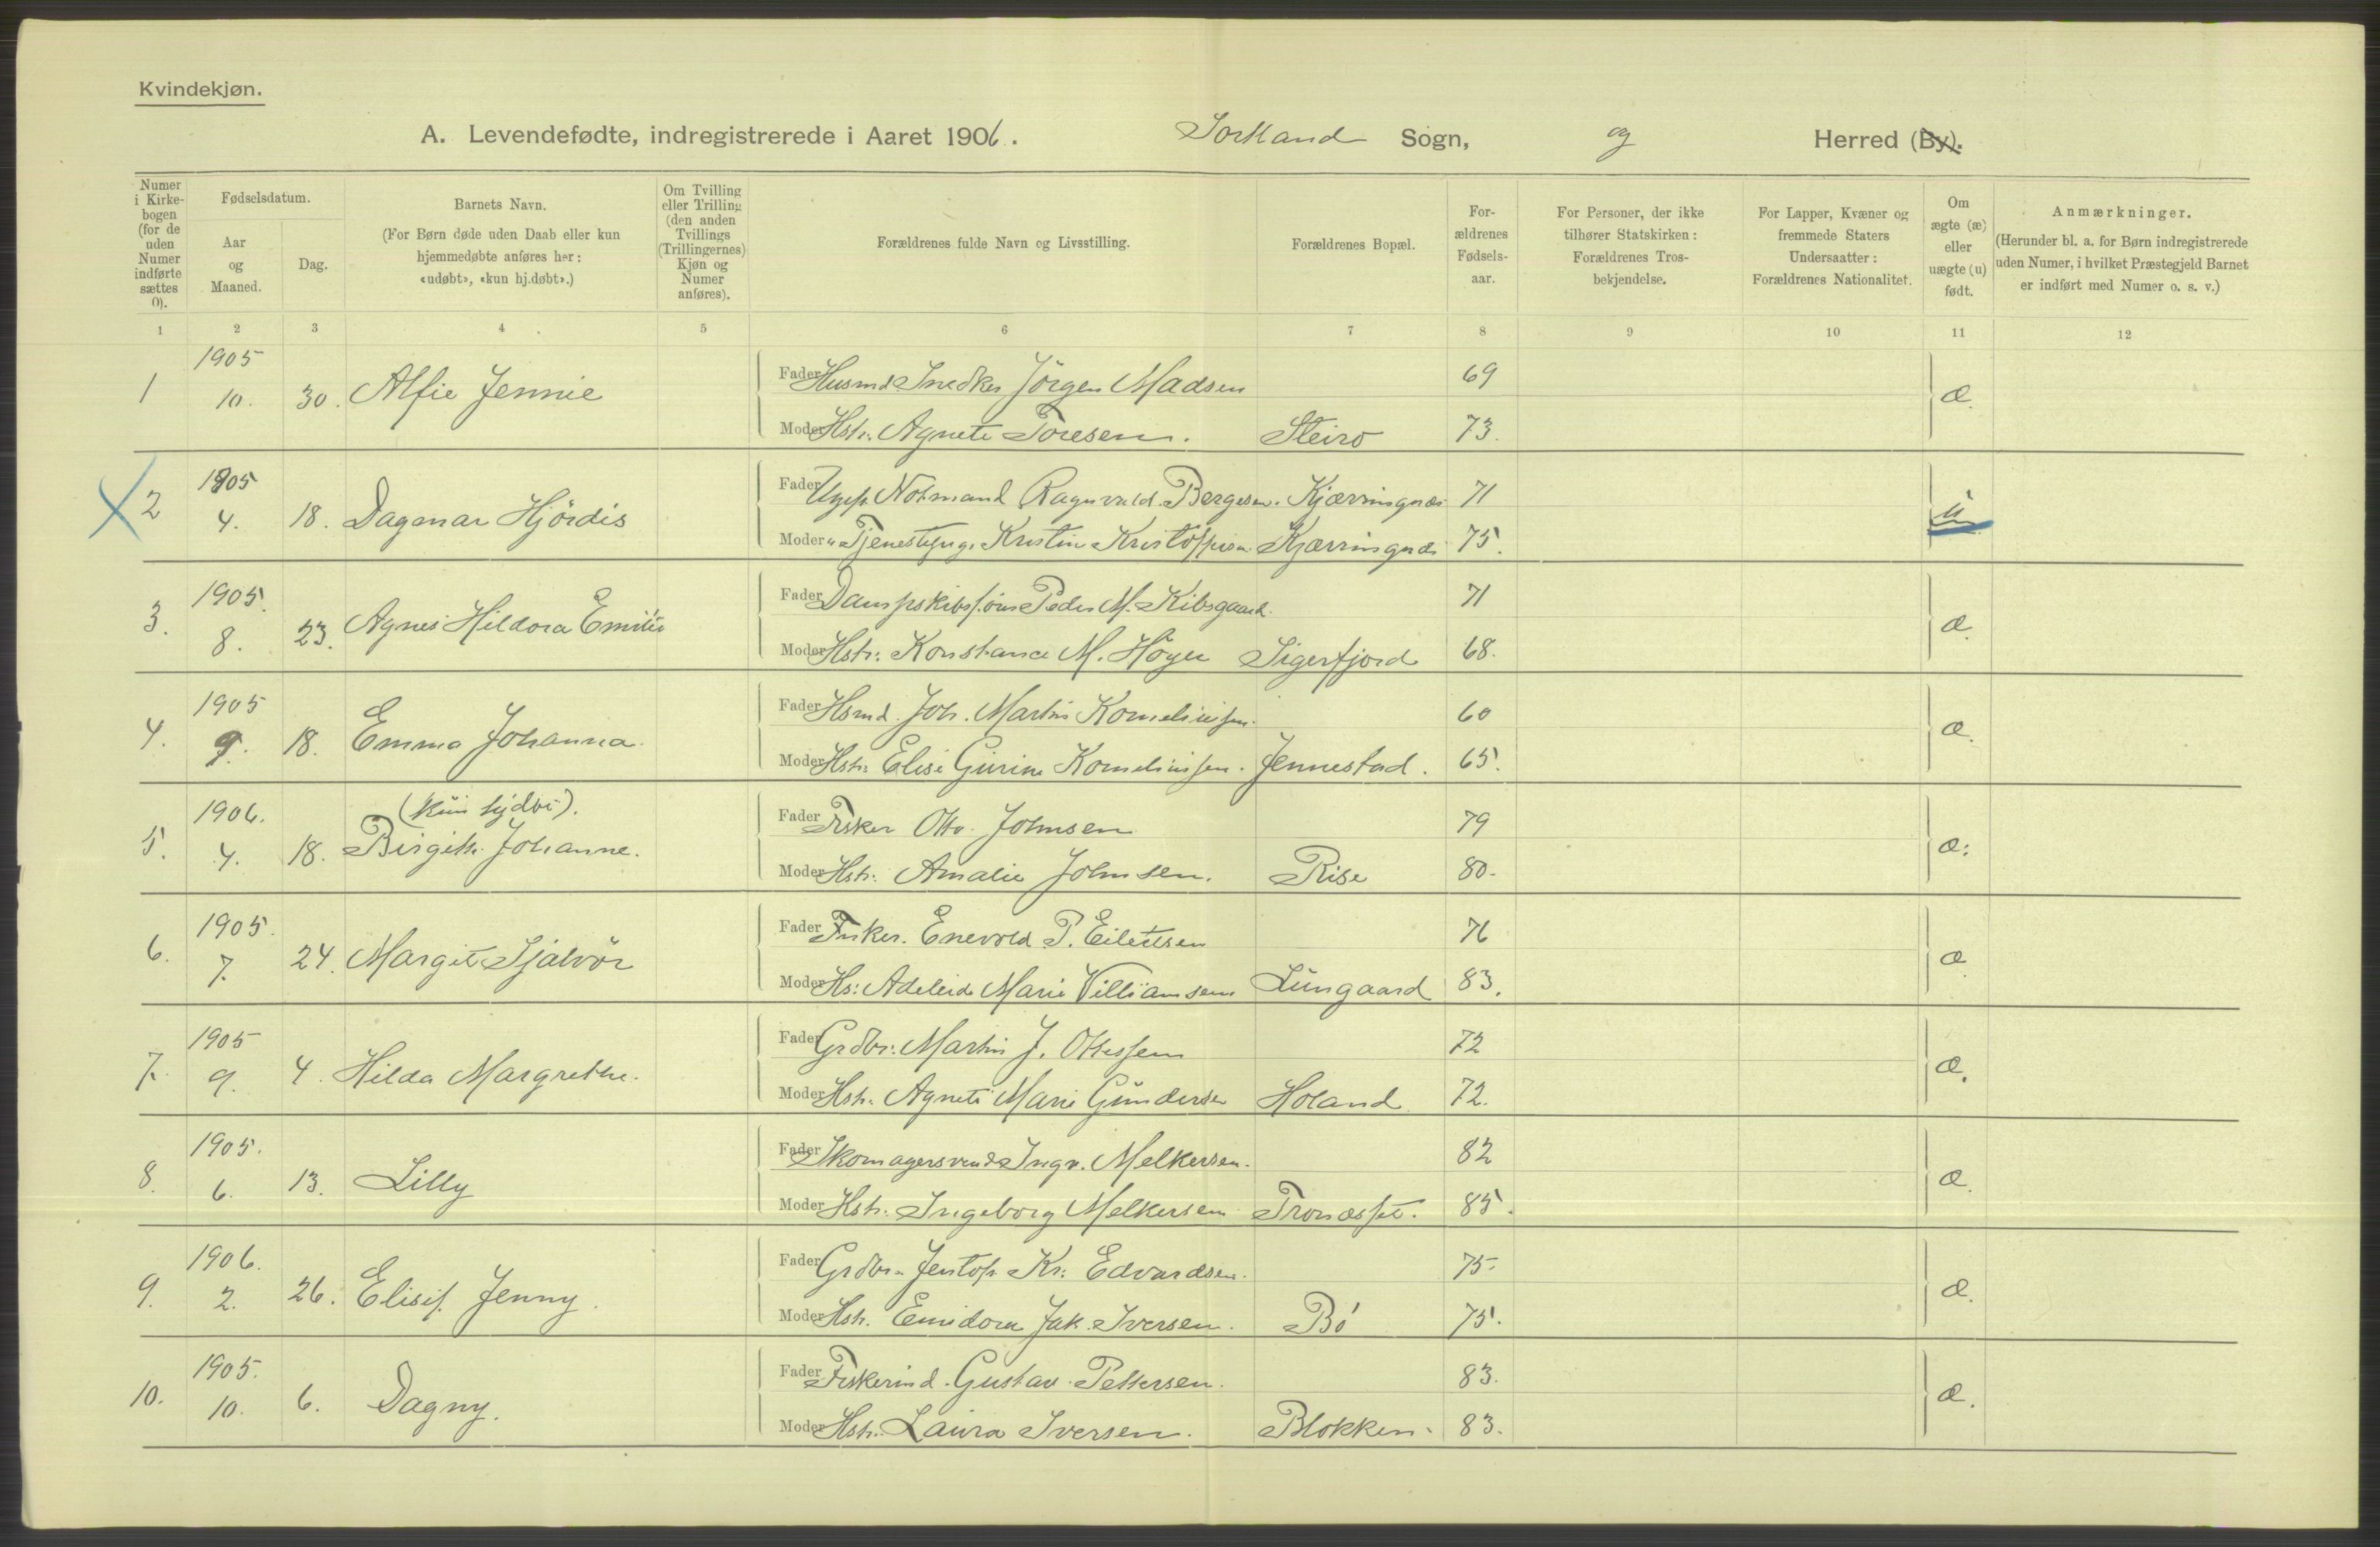 Kvindekjøn.
A. Levendefødte, indregistrerede i Aaret 1906. Sortland Sogn, og Herred (By).
Numer i Kirkebogen (for de uden Numer indførte sættes 0).
Fødselsdatum.
Aar og Maaned.
Dag.
Barnets Navn.
(For Børn døde uden Daab eller kun hjemmedøbte anføres her: «udøbt», «kun hj.døbt».)
Om Tvilling eller Trilling (den anden Tvillings (Trillingernes) Kjøn og Numer anføres).
Forældrenes fulde Navn og Livsstilling.
Forældrenes Bopæl.
Forældrenes Fødselsaar.
For Personer, der ikke tilhører Statskirken: Forældrenes Trosbekjendelse.
For Lapper, Kvæner og fremmede Staters Undersaatter: Forældrenes Nationalitet.
Om ægte (æ) eller uægte (u) født.
Anmærkninger.
(Herunder bl. a. for Børn indregistrerede uden Numer, i hvilket Præstegjeld Barnet er indført med Numer o. s. v.)
1 2 3 4 5 6 7 8 9 10 11 12
1 1905 10. 30. Alfie Jennie
Fader Husmd Snedker Jörgen Madsen 69
Moder Hstr. Agnete Toresen. Steiro 73. æ.
2 1905 4. 18. Dagmar Hjördis
Fader Ugift Notmand Ragnvald Bergesen. Kjærringnæs 71
Moder " Tjenestepige Kristin Kristoffersen Kjærringnæs 75. u
3. 1905. 8. 23. Agnes Hildora Emilie
Fader Peder M. Kibsgaard. 71
Moder Hstr. Konstance M. Höyer Sigerfjord 68. æ.
4. 1905 9. 18. Emma Johanna.
Fader Hsmd. Joh. Martin Korneliussen. 60
Moder Hstr. Elise Gurine Korneliussen. Jennestad. 65. æ.
5. 1906. 4. 18. (kun hjdbt).
Birgithe Johanne.
Fader Fisker Otto Johnsen 79
Moder Hstr. Amalie Johnsen. Rise 80. æ.
6. 1905. 7. 24. Margit Sjalvör
Fader Fisker. Enevold P. Eilertsen 76
Moder Hs: Adeleide Marie Villiamsen Lungaard 83. æ
7. 1905 9. 4. Hilda Margrethe.
Fader Grdbr. Martin J. Ottesen 72
Moder Hstr. Agnete Marie Gundersen Holand 72. æ.
8. 1905. 6. 13. Lilly
Fader Skomagersvend Ingv. Melkersen. 82
Moder Hstr. Ingeborg Melkersen 85. æ.
9. 1906. 2. 26. Elisif Jenny.
Fader Grdbr. Jentoft Kr. Edvardsen. 75.
Moder Hstr. Emidora Jak. Iversen. Bö 75. æ.
10. 1905. 10. 6. Dagny.
Fader Gustav Pettersen. 83.
Moder Hstr. Laura Iversen. Blokken. 83. æ.